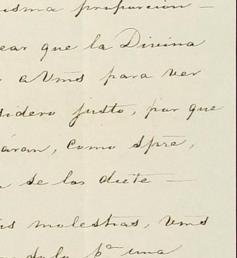 isma proporción —
ear que la Divina
a Vms para ver
sidero justo, por que
áran, como Spre,
se los dicte —
is molestras, Vms
dulo pª una